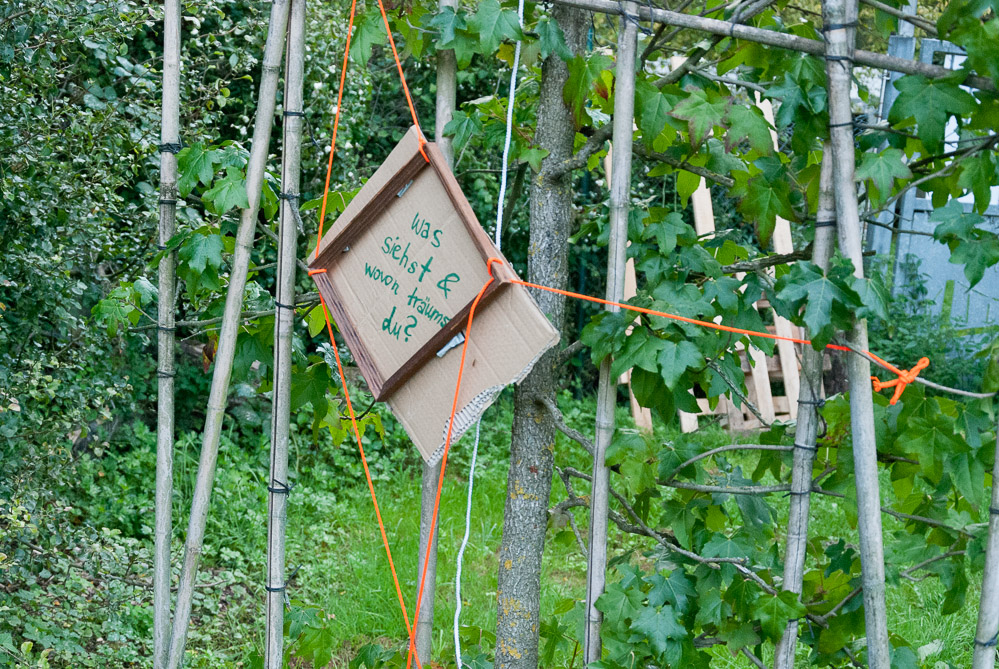 Was
siehst &
wovon träumst
du?